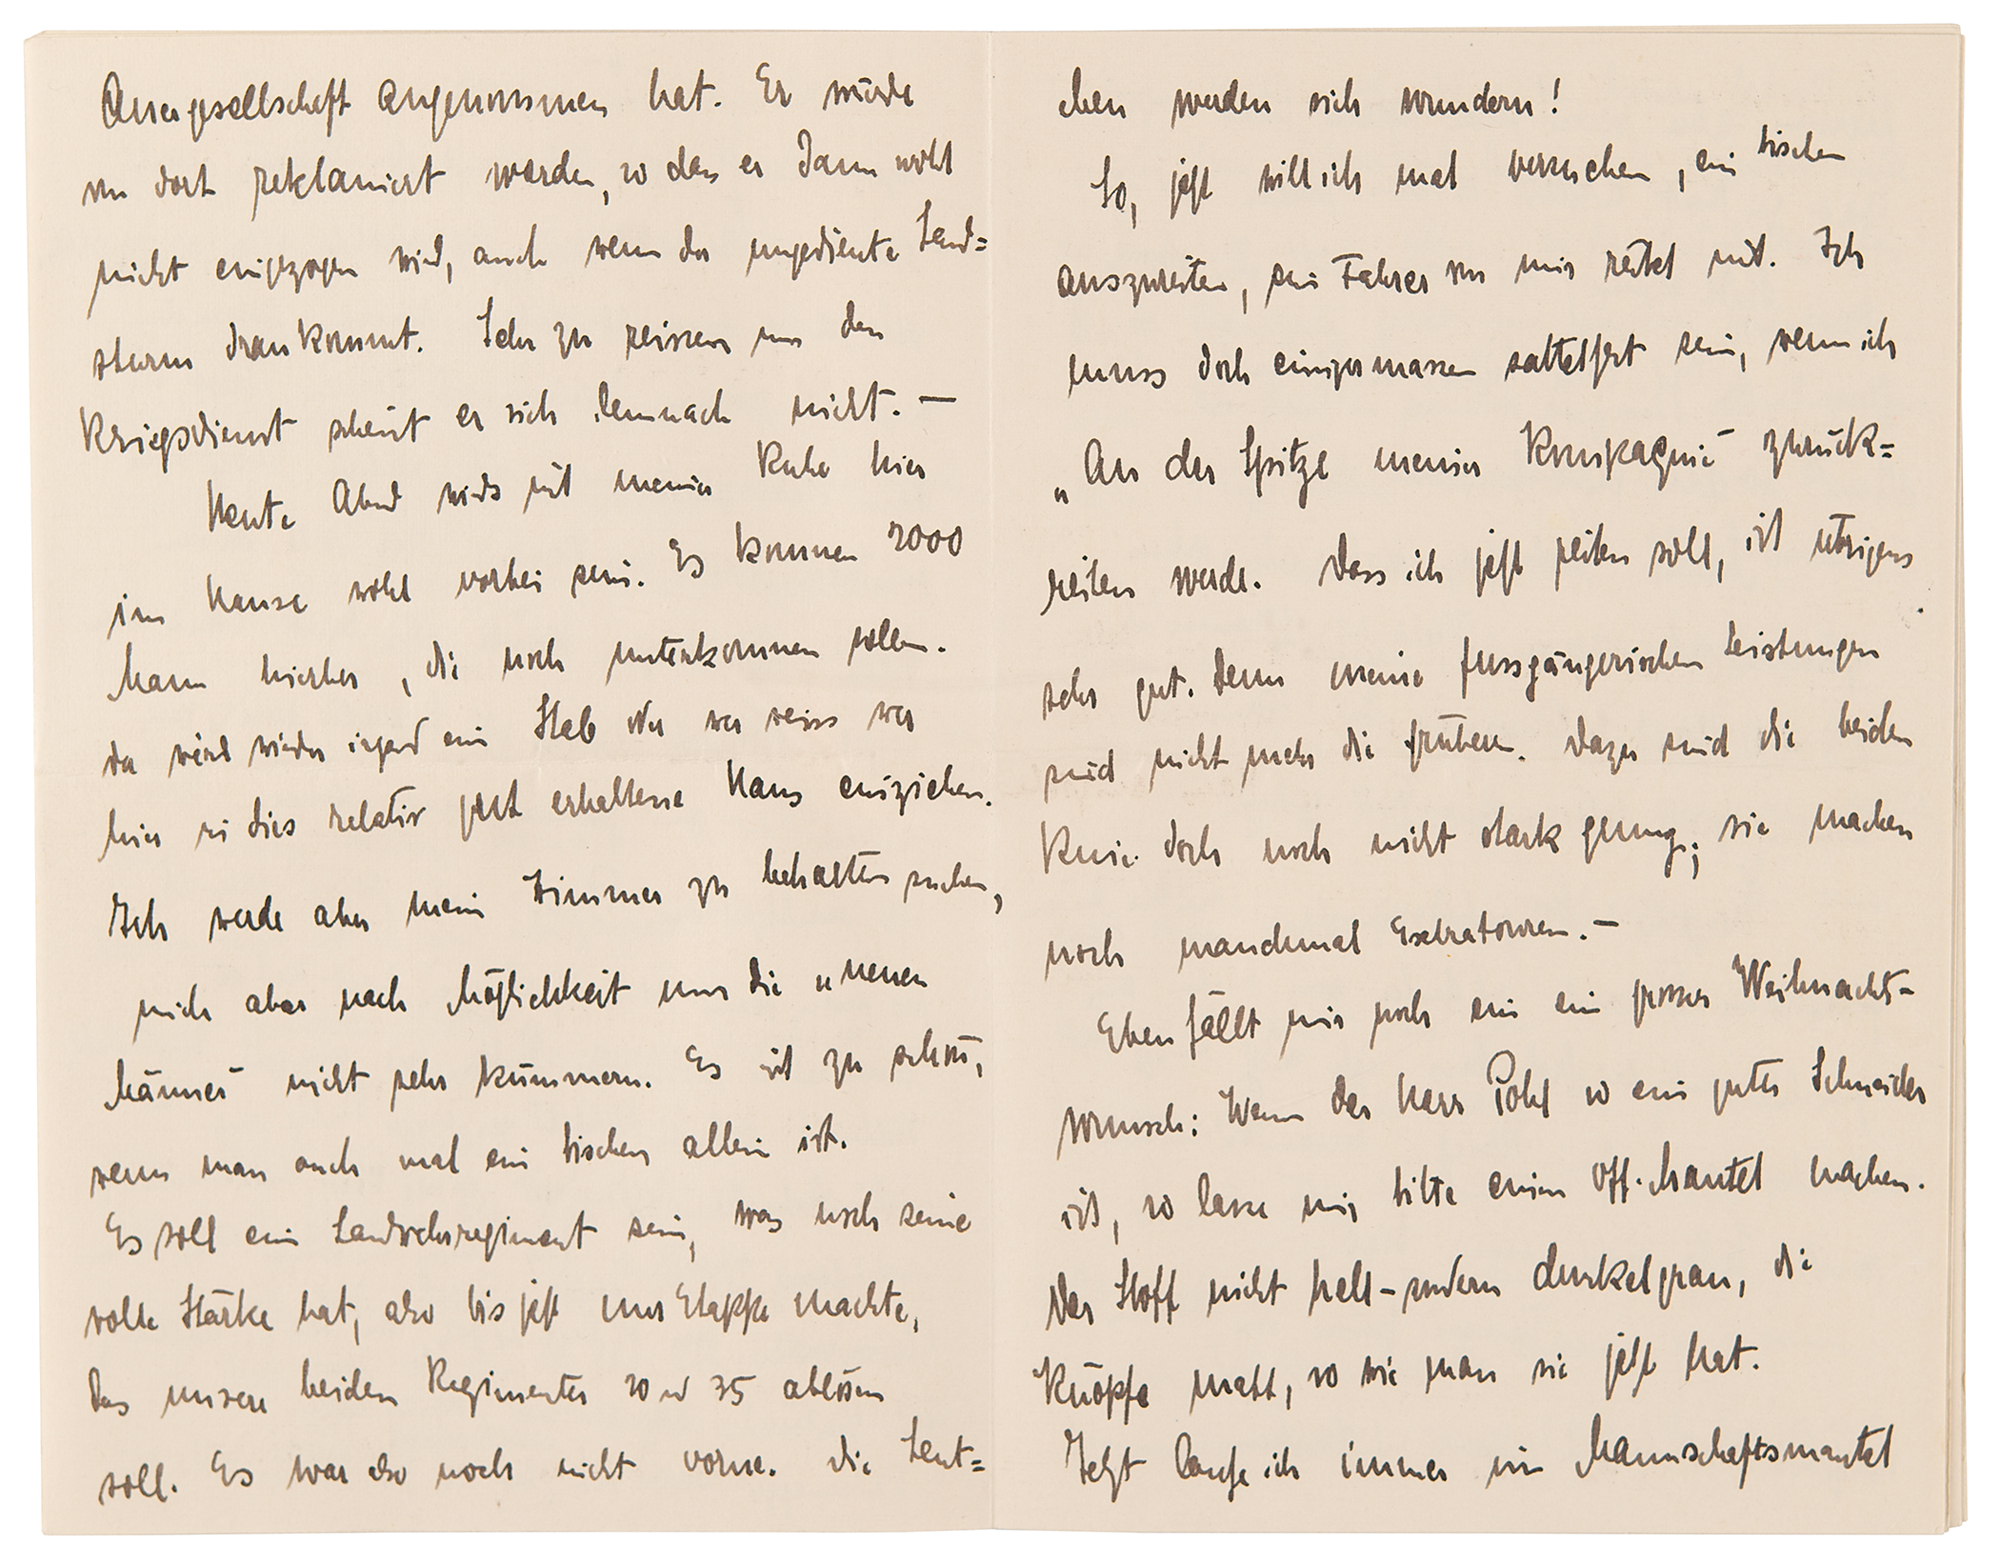 Auergesellschaft angenommen hat. Er würde
von dort reklamiert werden, so dass er dann wohl
nicht eingezogen wird, auch wenn der ungediente Land=
sturm drankommt. Sehr zu reissen um den
Kriegsdienst scheint er sich demnach nicht. —
Heute Abend wirds mit meiner Ruhe hier
im Hause wohl vorbei sein. Es kommen 2000
Mann hierher, die noch unterkommen sollen.
da wird wieder irgend ein Stab oder wer weiss wer
hier in dies relativ gut erhaltene Haus einziehen.
Ich werde aber mein Zimmer zu behalten suchen,
mich aber nach Möglichkeit um die „neuen
Männer" nicht sehr kümmern. Es ist zu schön,
wenn man auch mal ein bischen allein ist.
Es soll ein Landwehrregiment sein, was noch seine
volle Stärke hat, also bis jetzt nur Etappe machte,
das unsere beiden Regimenter 20 u 35 ablösen
soll. Es war also noch nicht vorne. Die Leut=
chen werden sich wundern!
So, jetzt will ich mal versuchen, ein bischen
auszureiten, ein Fahrer von mir reitet mit. Ich
muss doch einigermassen sattelfest sein, wenn ich
„An der Spitze meiner Kompagnie" zurück=
reiten werde. Dass ich jetzt reiten soll, ist übrigens
sehr gut. Denn meine fussgängerischen Leistungen
sind nicht mehr die früheren. Dazu sind die beiden
Knie doch noch nicht stark genug; sie machen
noch manchmal Extratouren. —
Eben fällt mir noch ein ein grosser Weihnachts-
wunsch: Wenn der Herr Pohl so ein guter Schneider
ist, so lasse mir bitte einen Off. Mantel machen.
Der Stoff nicht hell- sondern dunkelgrau, die
Knöpfe matt, so wie man sie jetzt hat.
Jetzt laufe ich immer im Mannschaftsmantel